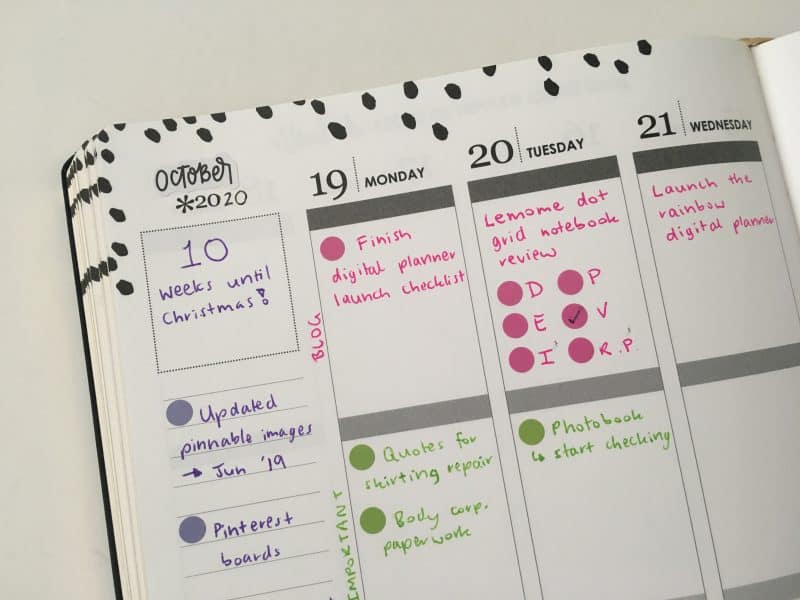 October
*2020
10
weeks until
Christmas!
Updated
pinnable images
→ Jun '19
Pinterest
boards
19 MONDAY
BLOG
Finish
digital planner
launch checklist
IMPORTANT
Quotes for
skirting repair
Body corp.
paperwork
20 TUESDAY
Lemome dot
grid notebook
review
D P
E ✓ V
I R.P.
Photobook
↳ start checking
21 WEDNESDAY
Launch the
rainbow
digital planner